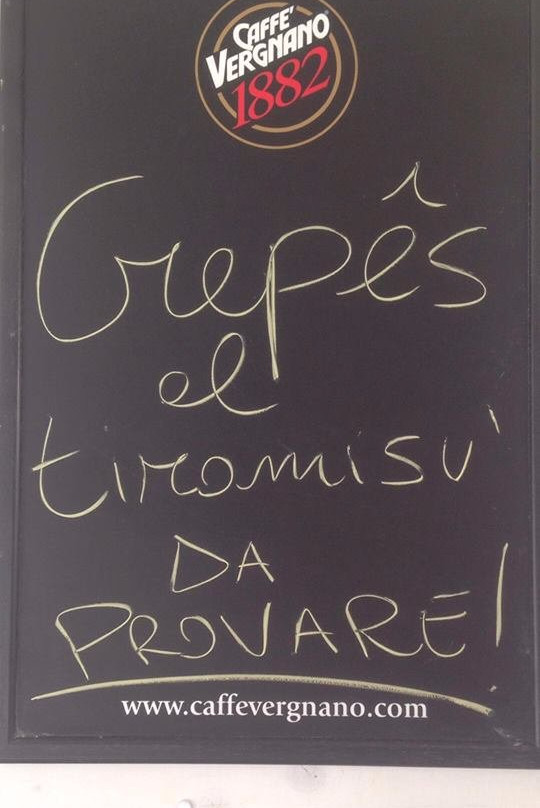 CAFFE'
VERGNANO
1882
Crepês
el
tiromisu'
DA
PROVARE!
www.caffevergnano.com